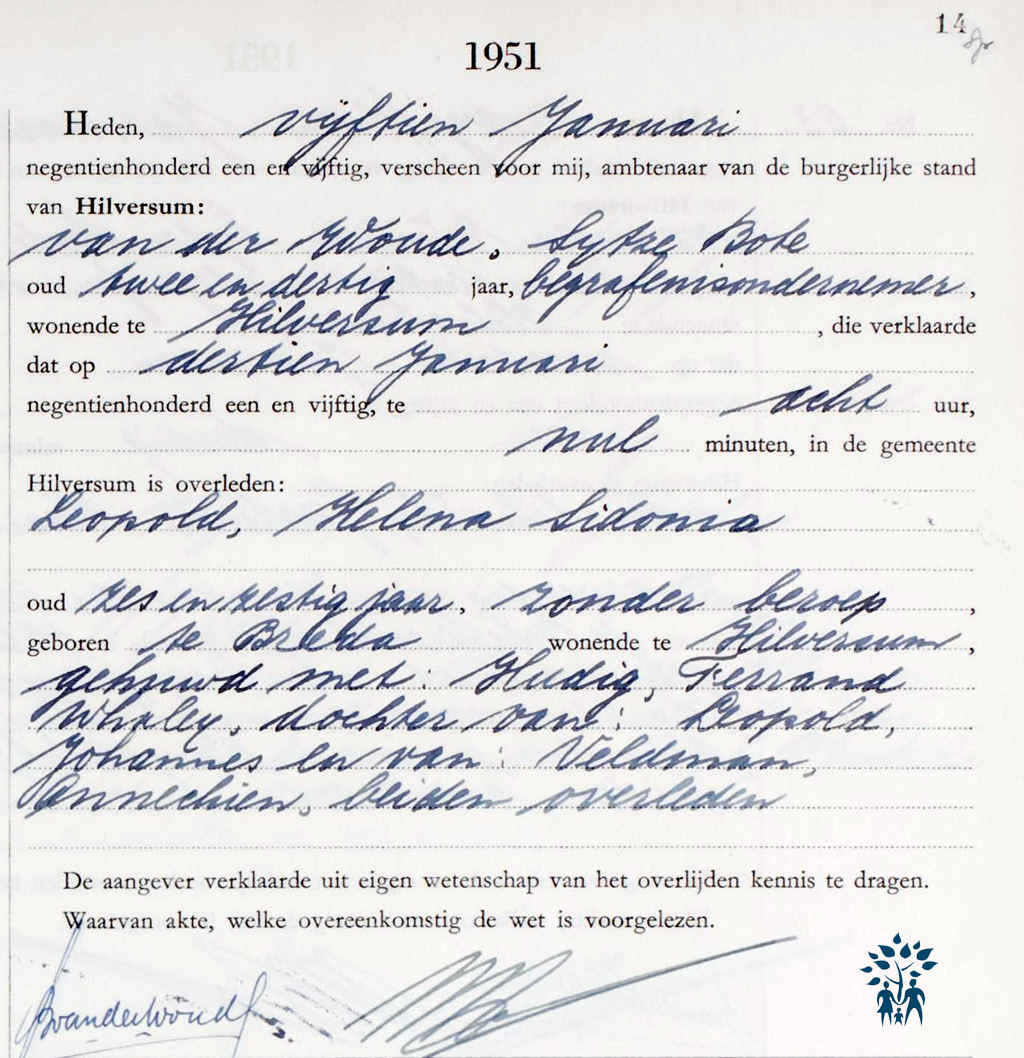 14
1951
Heden, vijftien Januari
negentienhonderd een en vijftig, verscheen voor mij, ambtenaar van de burgerlijke stand
van Hilversum:
van der Woude, Sytze Bote
oud twee en dertig jaar, begrafenisondernemer,
wonende te Hilversum, die verklaarde
dat op dertien Januari
negentienhonderd een en vijftig, te acht uur,
nul minuten, in de gemeente
Hilversum is overleden:
Leopold, Helena Sidonia
oud zes en zestig jaar, zonder beroep,
geboren te Breda wonende te Hilversum,
gehuwd met: Hudig, Ferrand
Whaley, dochter van: Leopold,
Johannes en van: Veldman,
Annechien, beiden overleden
De aangever verklaarde uit eigen wetenschap van het overlijden kennis te dragen.
Waarvan akte, welke overeenkomstig de wet is voorgelezen.
vanderWoude